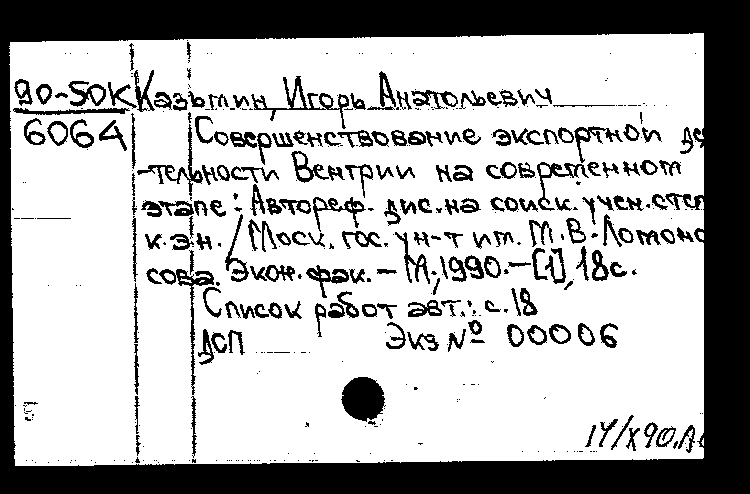 90-50К Казьмин, Игорь Анатольевич
6064 Совершенствование экспортной дея
-тельности Венгрии на современном
этапе: Автореф. дис. на соиск. учен. степ
к.э.н. / Моск. гос. ун-т им. М.В. Ломоно
сова. Экон. фак. – М., 1990. – [1], 18 с.
Список работ авт.: с. 18
ДСП Экз № 00006
17/X90.